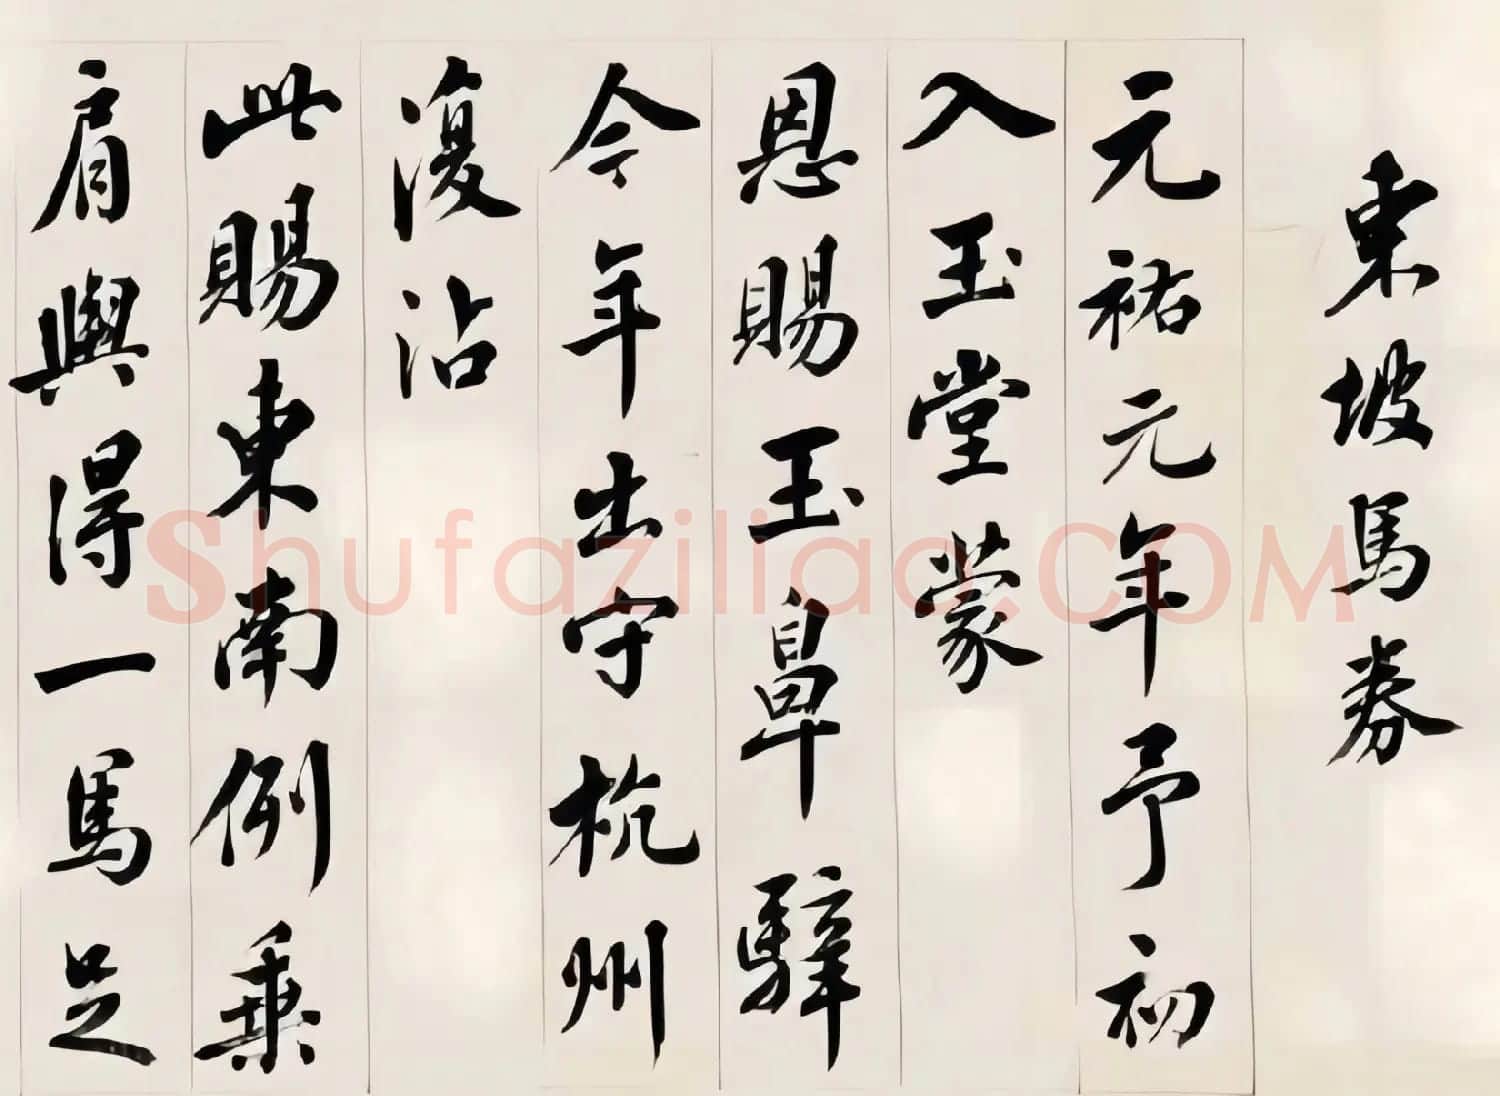 東坡馬券
元祐元年予初
入玉堂蒙
恩賜玉鼻騂
今年出守杭州
復沾
此賜東南例乗
肩輿得一馬足
shufaziliao.COM